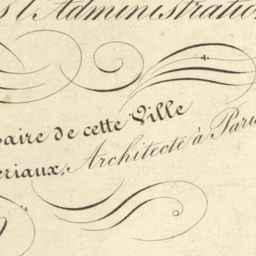 l'Administratio
aire de cette Ville
eriaux, Architecte à Paris